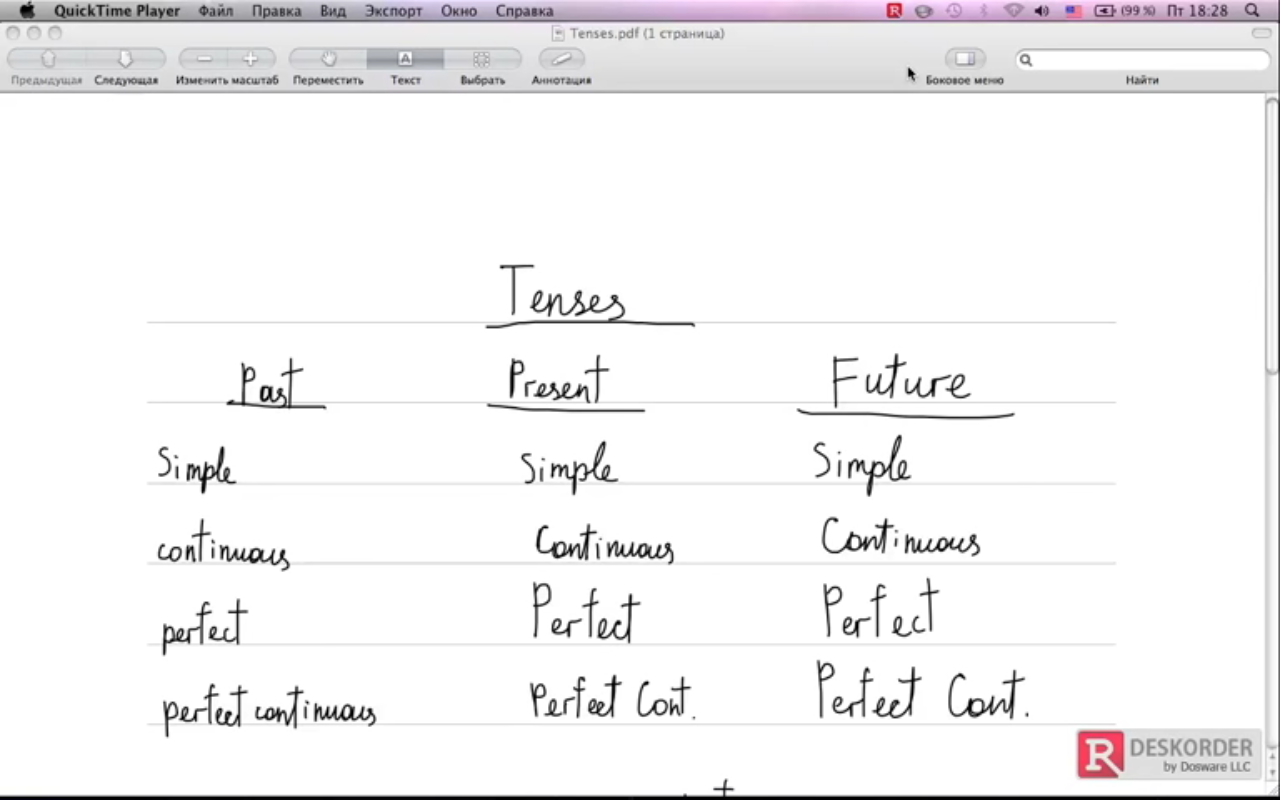 QuickTime Player Файл Правка Вид Экспорт Окно Справка (99 %) Пт 18:28
Tenses.pdf (1 страница)
Предыдущая Следующая Изменить масштаб Переместить Текст Выбрать Аннотация Боковое меню Найти
Tenses
Past Present Future
Simple Simple Simple
continuous Continuous Continuous
perfect Perfect Perfect
perfect continuous Perfect Cont. Perfect Cont.
R DESKORDER
by Dosware LLC